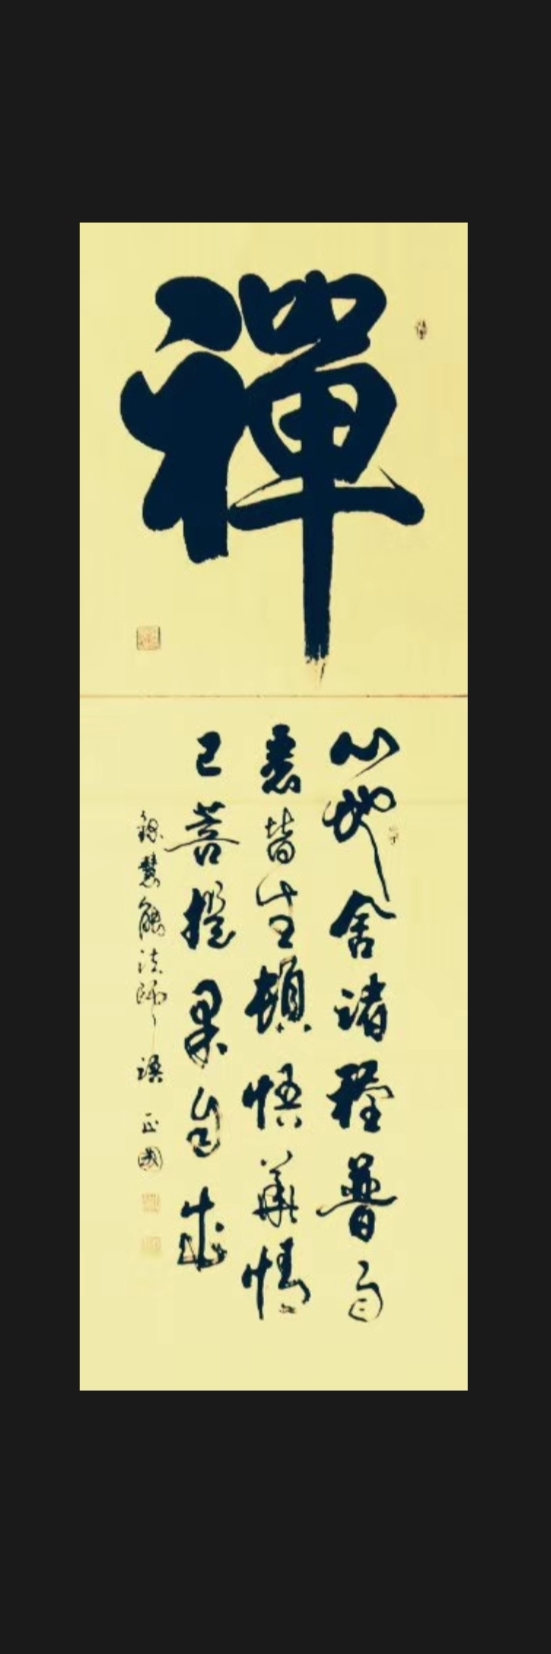 禪
心地含諸種普雨
悉皆生頓悟華情
已菩提果自成
錄慧能法師語 正國